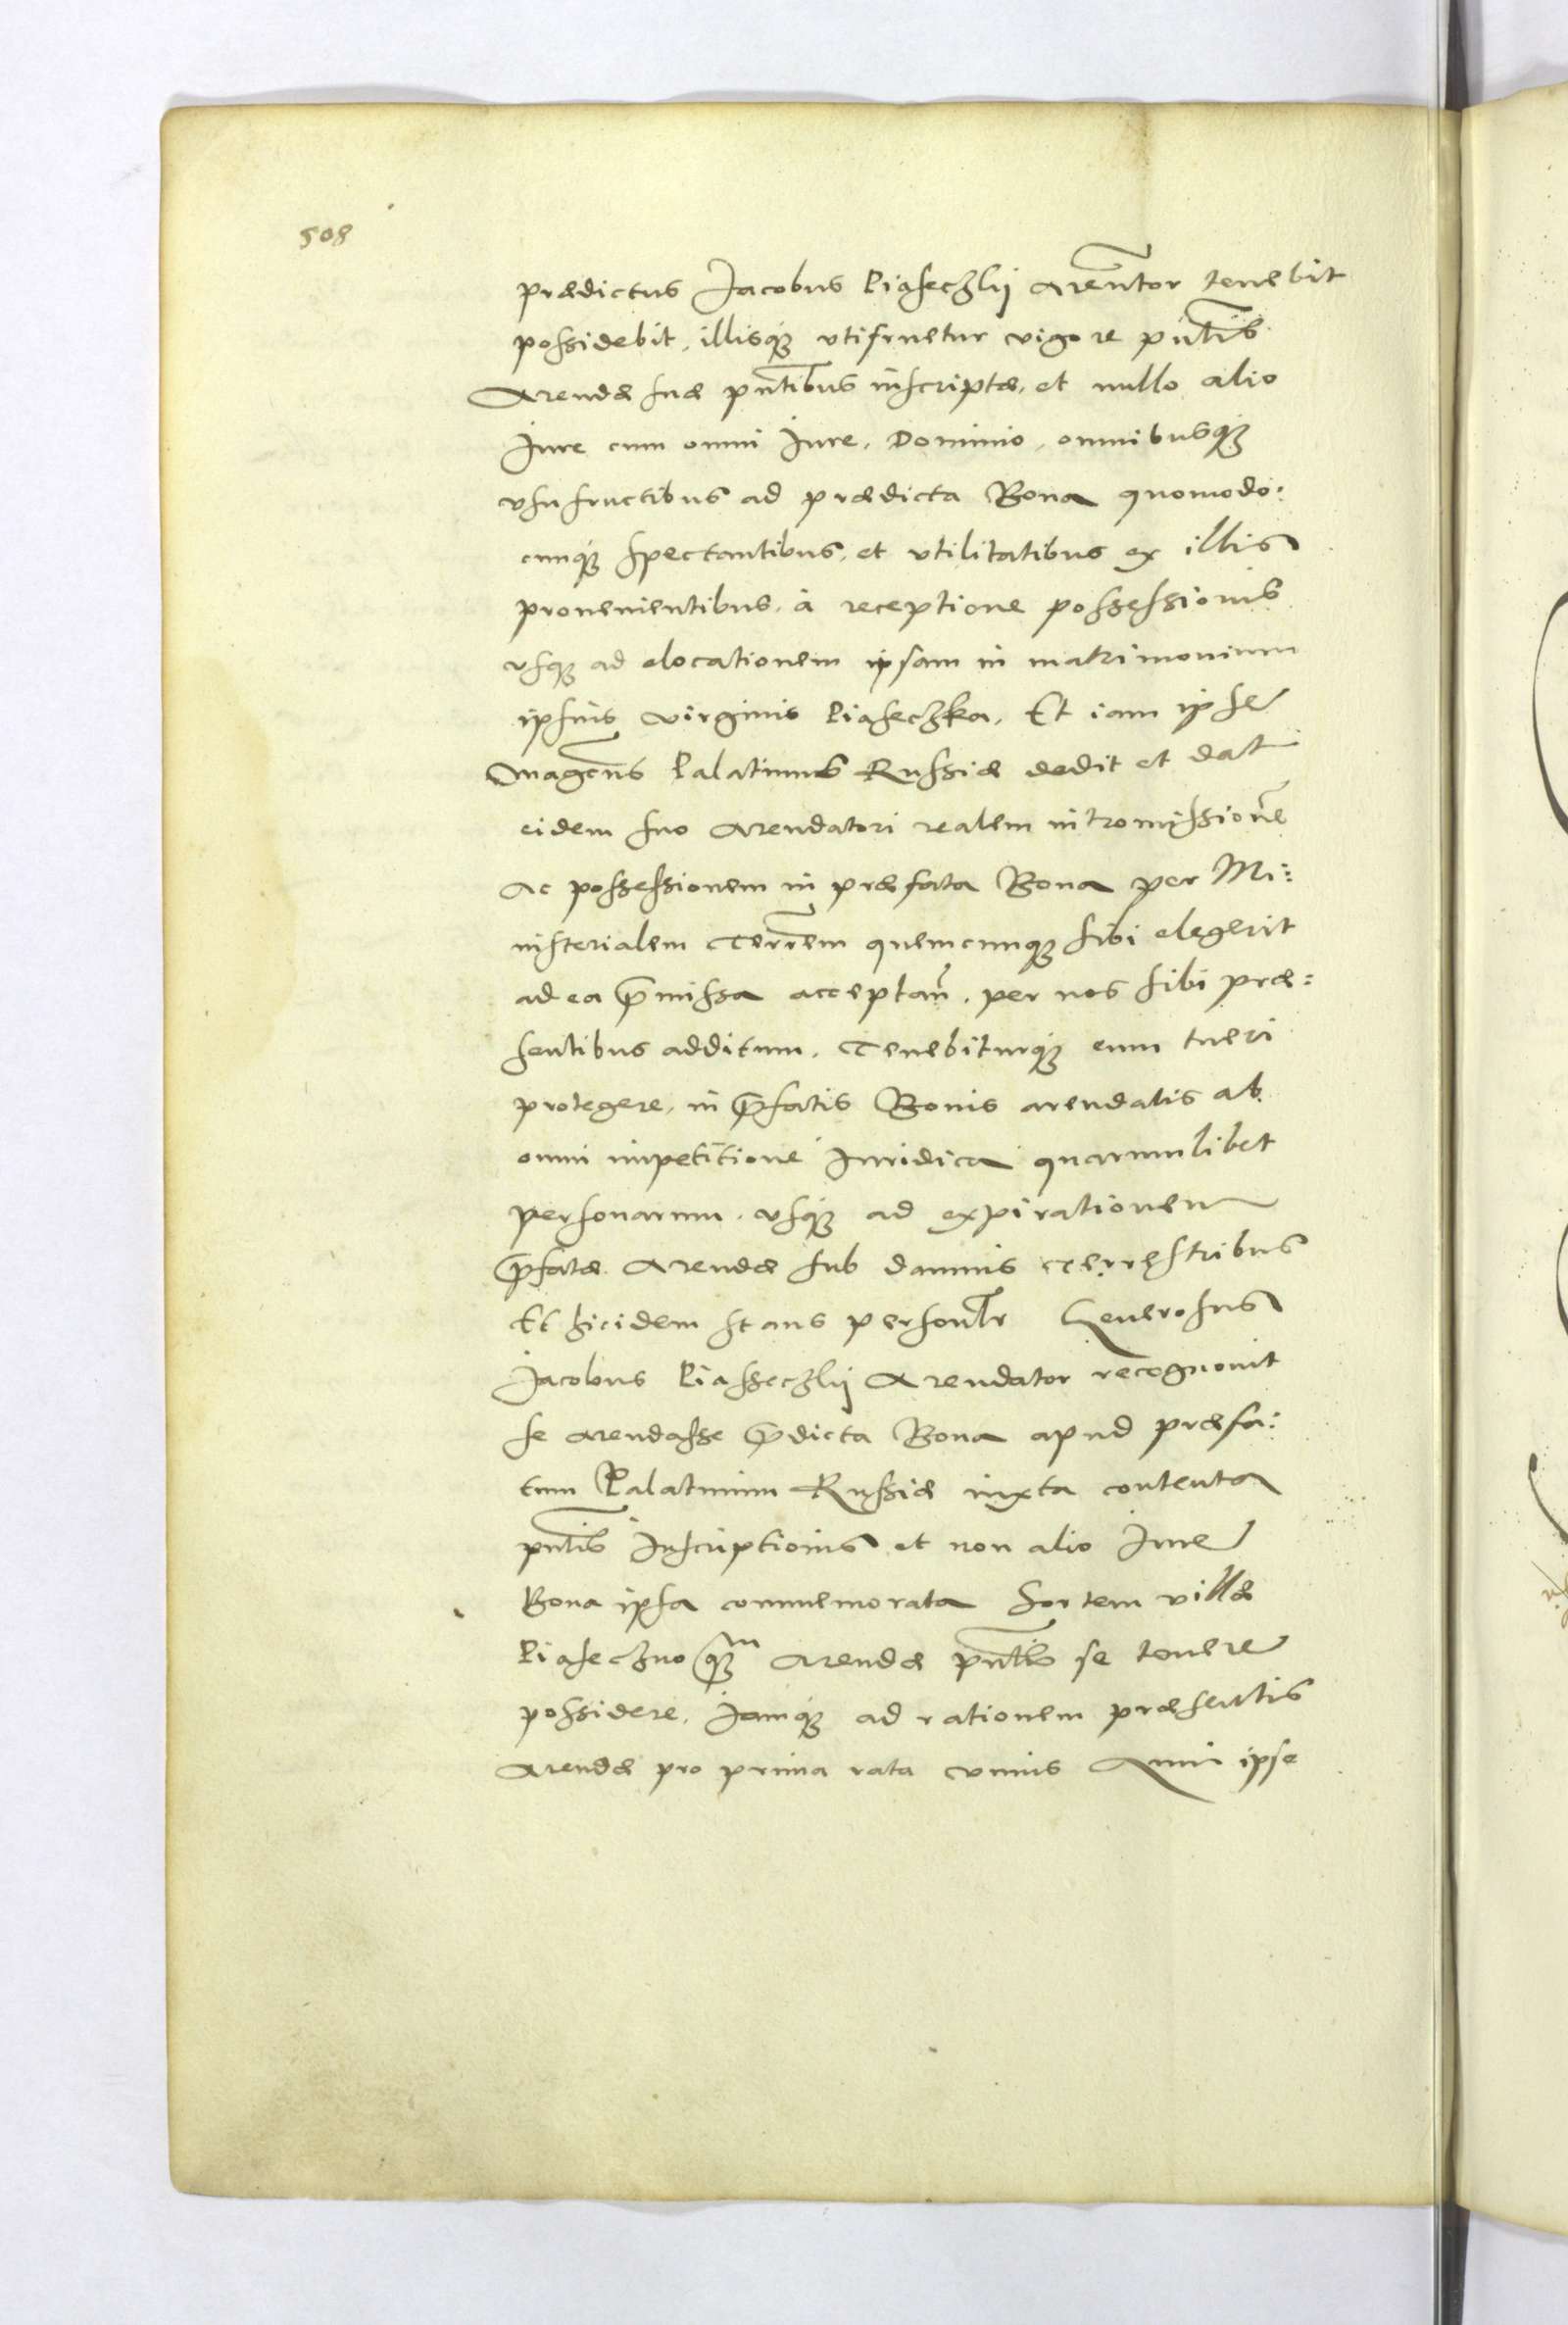 508
prædictus Jacobus Piąseczkij Arenñtor tenebit
possidebit, illisq3 vtifruetur vigore pñtis
Arendæ suæ pñtibus inscriptæ, et nullo alio
Jure cum omni Jure, Dominio, omnibusq3
vsufructibus ad prædicta Bona quomodo:
cunq3 spectantibus, et vtilitatibus ex illis
prouenientibus, à receptione possessionis
vsq3 ad elocationem ipsam in matrimonium
ipsius virginis Piąseczka, Et iam ipse
Magcus Palatinus Russiæ dedit et dat
eidem suo Arendatori realem intromissionē
Ac possessionem in præfata Bona per Mi:
nisterialem Terrem quemcunq3 sibi elegerit
ad ea p̄missa acceptan̄, per nos sibi præ:
sentibus additum, Tenebiturq3 eum tueri
protegere, in p̄fatis Bonis arendatis ab
omni impetitione Juridica quarumlibet
personarum, vsq3 ad expirationem
p̄fatæ Arendæ sub damnis terrestribus
Et hicidem stans personlr Generosus
Jacobus Piasseczkij Arendator recognouit
se arendasse p̄dicta Bona apud præfa:
tum Palatinum Russiæ iuxta contenta
pñtis Inscriptionis et non alio Jure
Bona ipsa commemorata Sortem villæ
Piąseczno Arendæ pñtis se tenere
possidere, Jamq3 ad rationem præsentis
Arendæ pro prima rata vnius Anni ipse